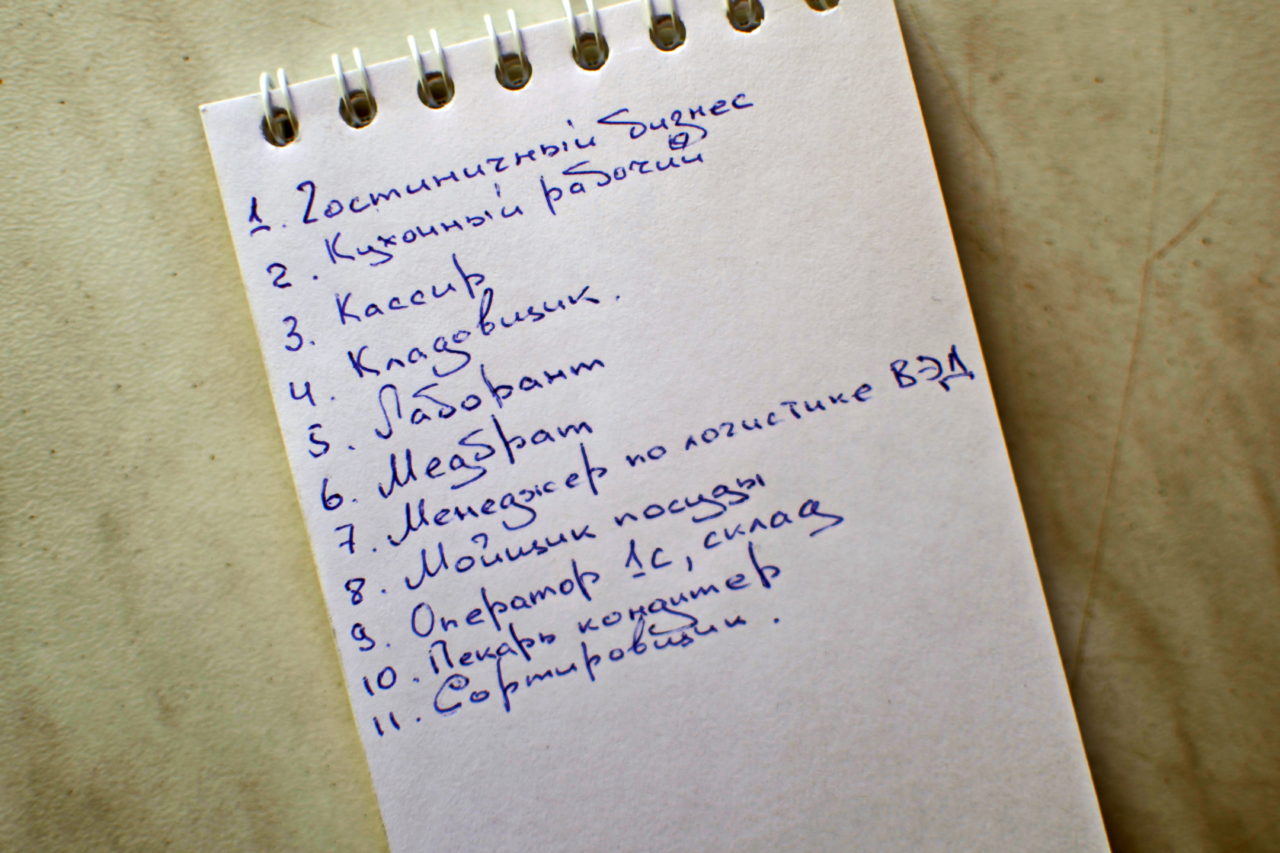 1. Гостиничный бизнес
2. Кухонный рабочий
3. Кассир
4. Кладовщик.
5. Лаборант
6. Медбрат
7. Менеджер по логистике ВЭД
8. Мойщик посуды
9. Оператор 1С, склад
10. Пекарь кондитер
11. Сортировщик.